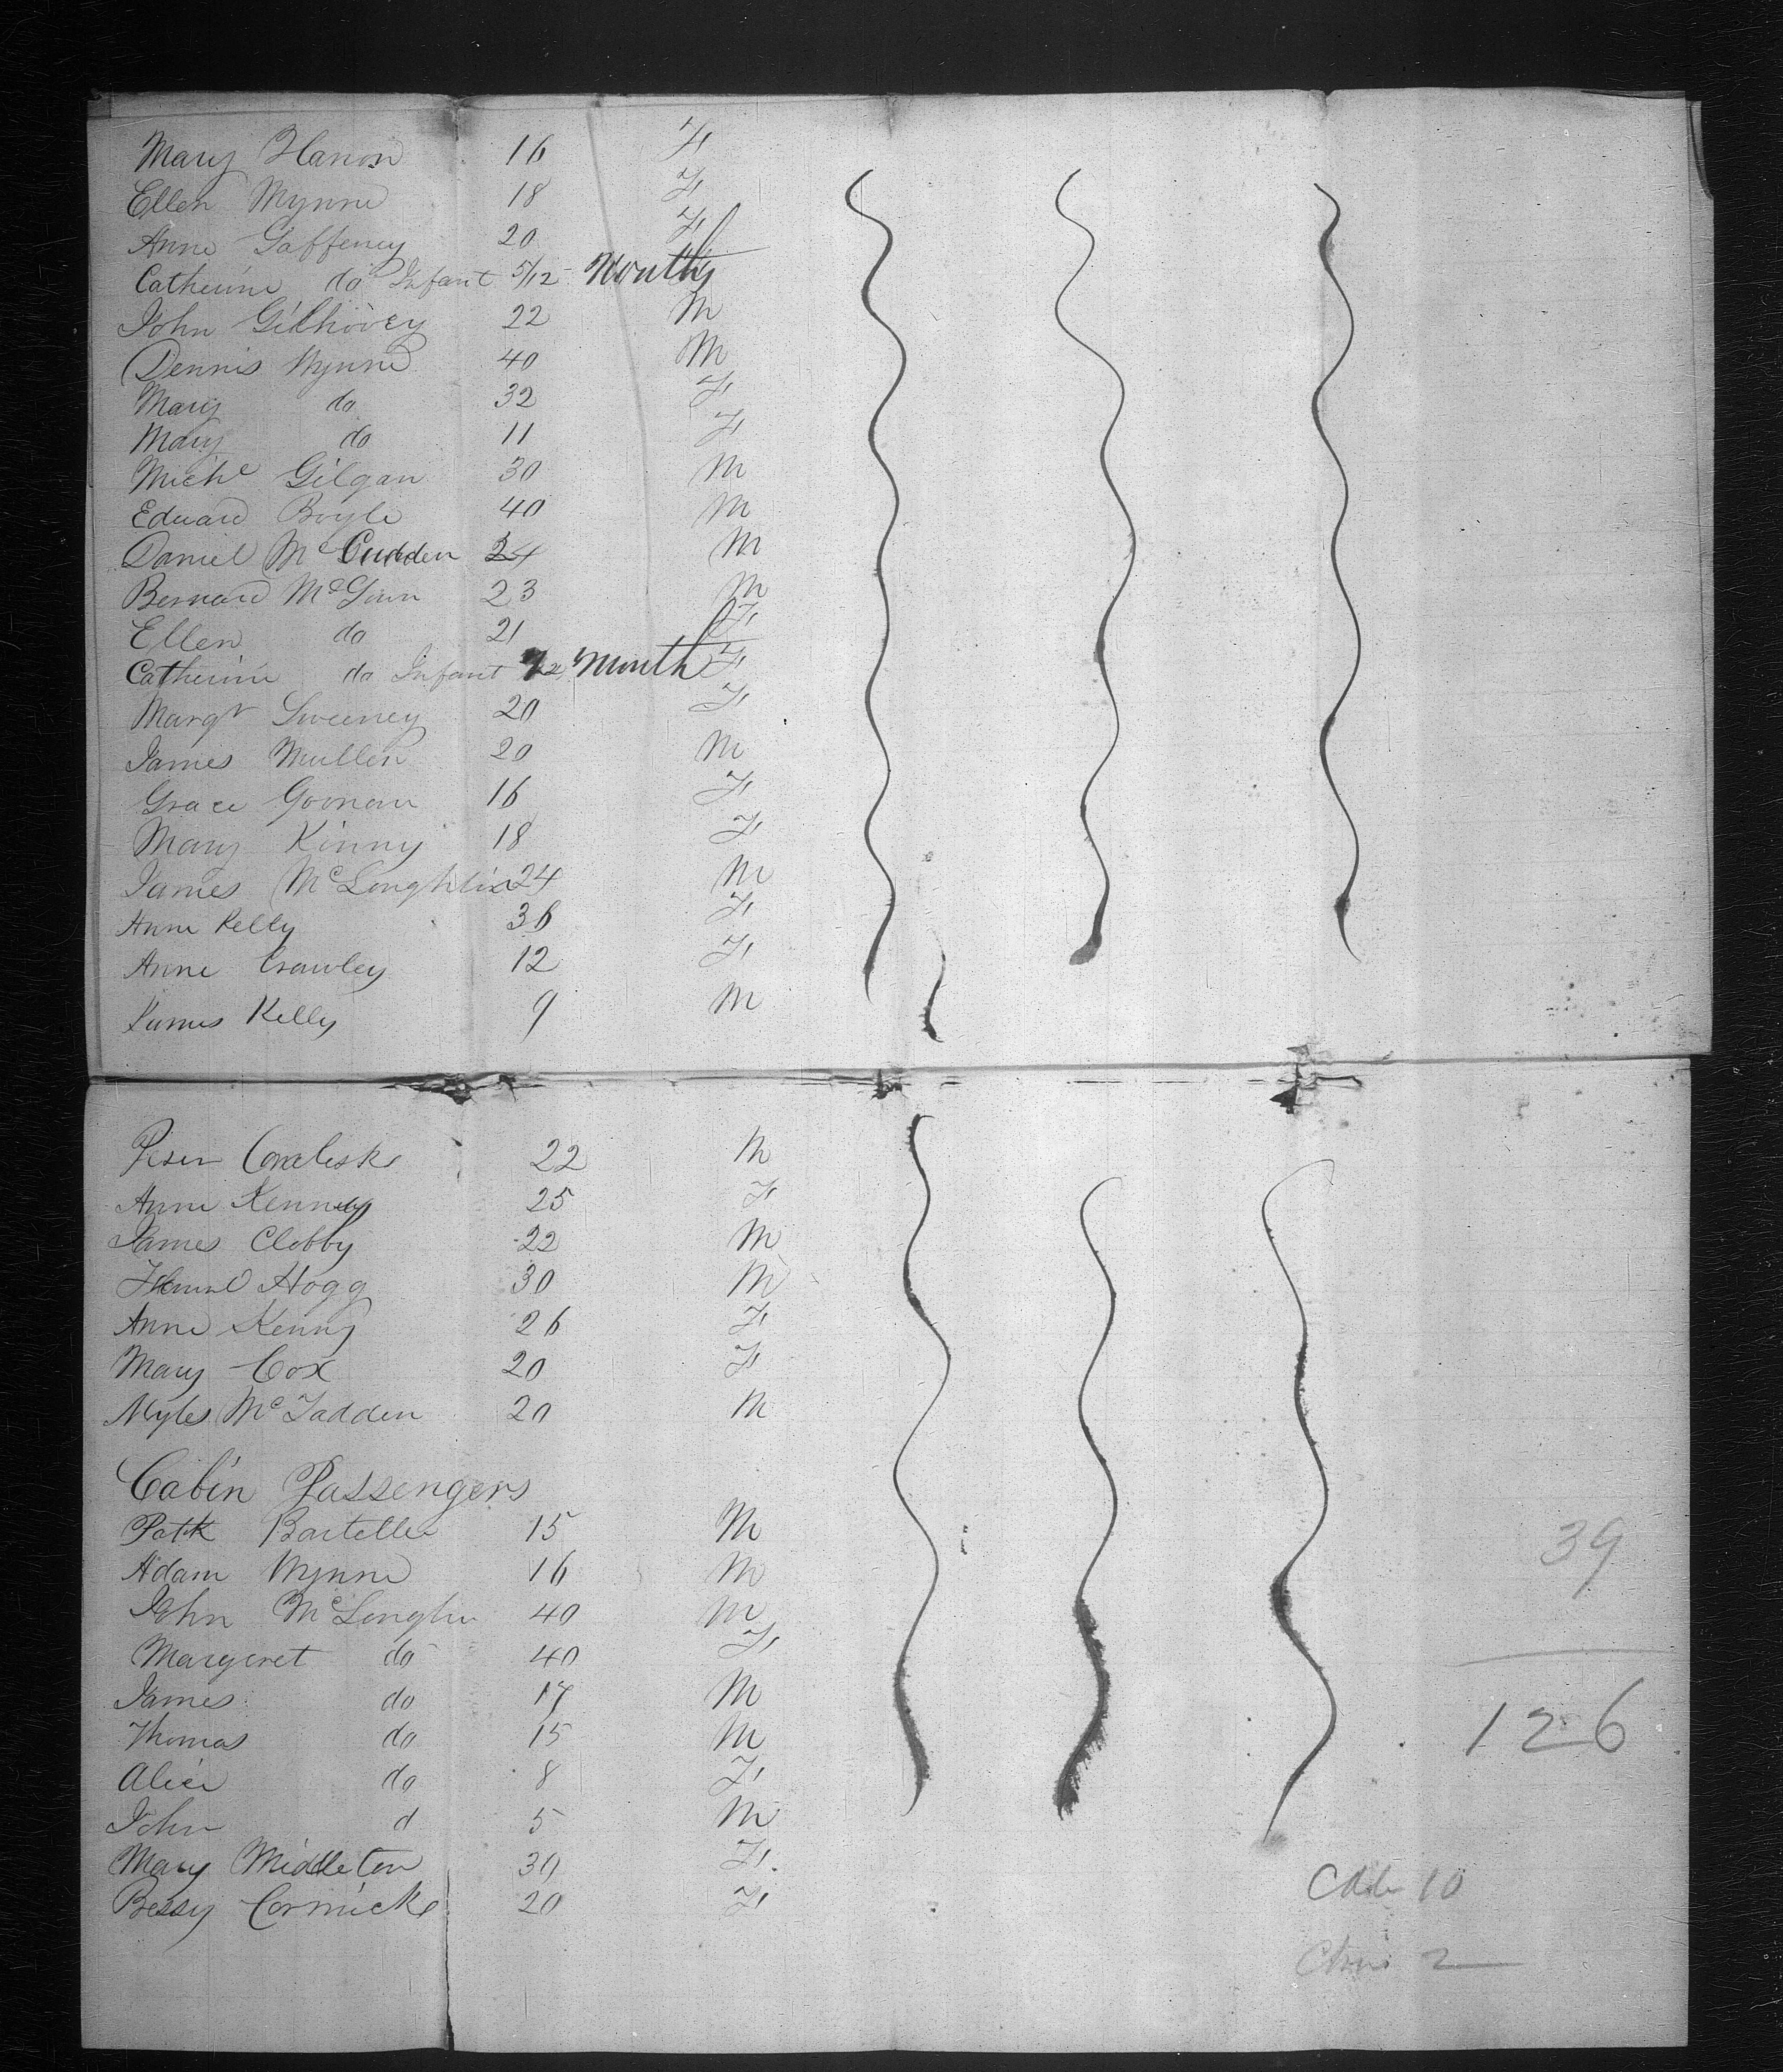 Mary Hanon 16 F
Ellen Wynne 18 F
Anne Gaffeney 20 F
Catherine do Infant 5/12 Months
John Gilhovey 22 M
Dennis Wynne 40 M
Mary do 32 F
Mary do 11 F
Michl Gilgan 30 M
Edward Boyle 40 M
Daniel McCudden 24 M
Bernard McGown 23 M
Ellen do 21 F
Catherine do Infant Month F
Margt Sweeney 20 F
James Mullen 20 M
Grace Goonan 16 F
Mary Kinny 18 F
James McLoughlin 24 M
Anne Kelly 36 F
Anne Crawley 12 F
James Kelly 9 M
Peter 22 M
Anne Kennedy 25 F
James Clobby 22 M
Hogg 30 M
Anne Kenny 26 F
Mary Cox 20 F
Myles McFadden 20 M
Cabin Passengers
Patk 15 M
Adam Wynne 16 M
John McLoughn 40 M
Margeret do 40 F
James do 17 M
Thomas do 15 M
Alice do 8 F
John d 5 M
Mary Middleton 30 F
Bessy Cormick 20 F
39
126
10
2